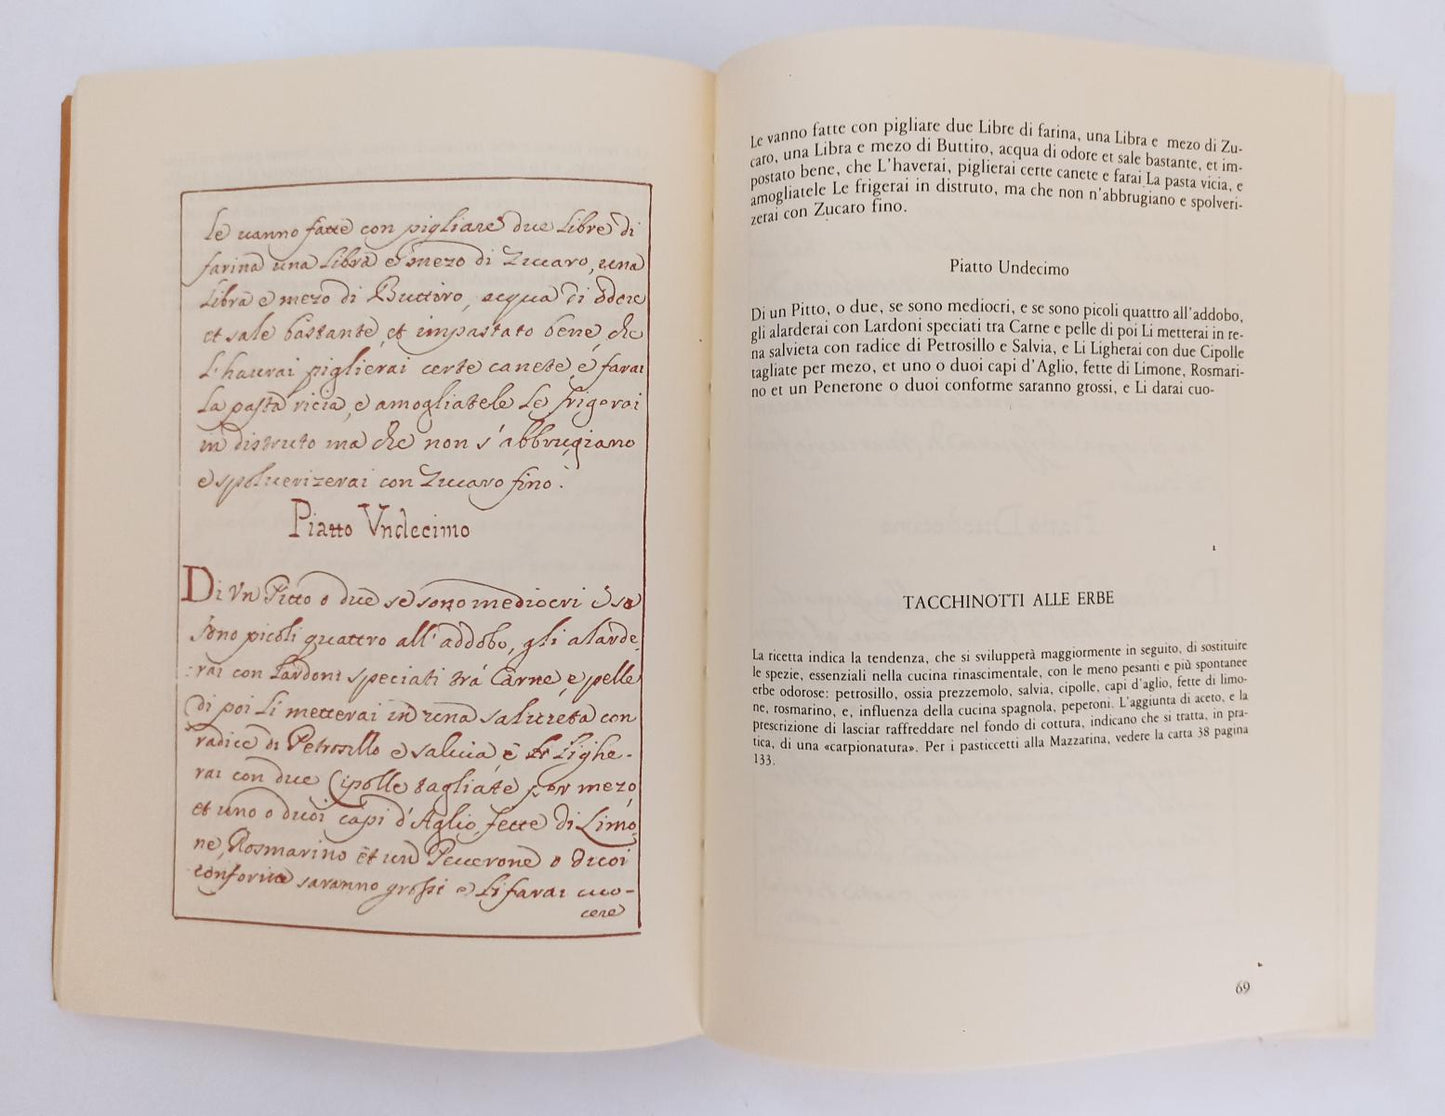 Le vanno fatte con pigliare due Libre di
farina una Libra e mezo di Zuccaro, una
Libra e mezo di Buttiro, acqua di odore
et sale bastante, et impastato bene, che
L'haverai piglierai certe canete e farai
La pasta vicia, e amogliatele Le frigerai
in distruto ma che non s'abbrugiano
e spolverizerai con Zuccaro fino.
Piatto Vndecimo
Di Vn Pitto o due se sono mediocri e se
sono picoli quattro all'addobo, gli alarde
:rai con Lardoni speciati trà Carne, e pelle
di poi Li metterai in una salvieta con
radice di Petrosillo e salvia, e Li Lighe-
rai con due Cipolle tagliate per mezo,
et uno o duoi capi d'Aglio, fette di Limo,
ne, Rosmarino et un Peverone o duoi
conforme saranno grossi e Li farai cuo-
cere
Le vanno fatte con pigliare due Libre di farina, una Libra e mezo di Zu-
caro, una Libra e mezo di Buttiro, acqua di odore et sale bastante, et im-
postato bene, che L'haverai, piglierai certe canete e farai La pasta vicia, e
amogliatele Le frigerai in distruto, ma che non n'abbrugiano e spolveri-
zerai con Zucaro fino.
Piatto Undecimo
Di un Pitto, o due, se sono mediocri, e se sono picoli quattro all'addobo,
gli alarderai con Lardoni speciati tra Carne e pelle di poi Li metterai in re-
na salvieta con radice di Petrosillo e Salvia, e Li Ligherai con due Cipolle
tagliate per mezo, et uno o duoi capi d'Aglio, fette di Limone, Rosmari-
no et un Penerone o duoi conforme saranno grossi, e Li darai cuo-
TACCHINOTTI ALLE ERBE
La ricetta indica la tendenza, che si svilupperà maggiormente in seguito, di sostituire
le spezie, essenziali nella cucina rinascimentale, con le meno pesanti e più spontanee
erbe odorose: petrosillo, ossia prezzemolo, salvia, cipolle, capi d'aglio, fette di limo-
ne, rosmarino, e, influenza della cucina spagnola, peperoni. L'aggiunta di aceto, e la
prescrizione di lasciar raffreddare nel fondo di cottura, indicano che si tratta, in pra-
tica, di una «carpionatura». Per i pasticcetti alla Mazzarina, vedere la carta 38 pagina
133.
69